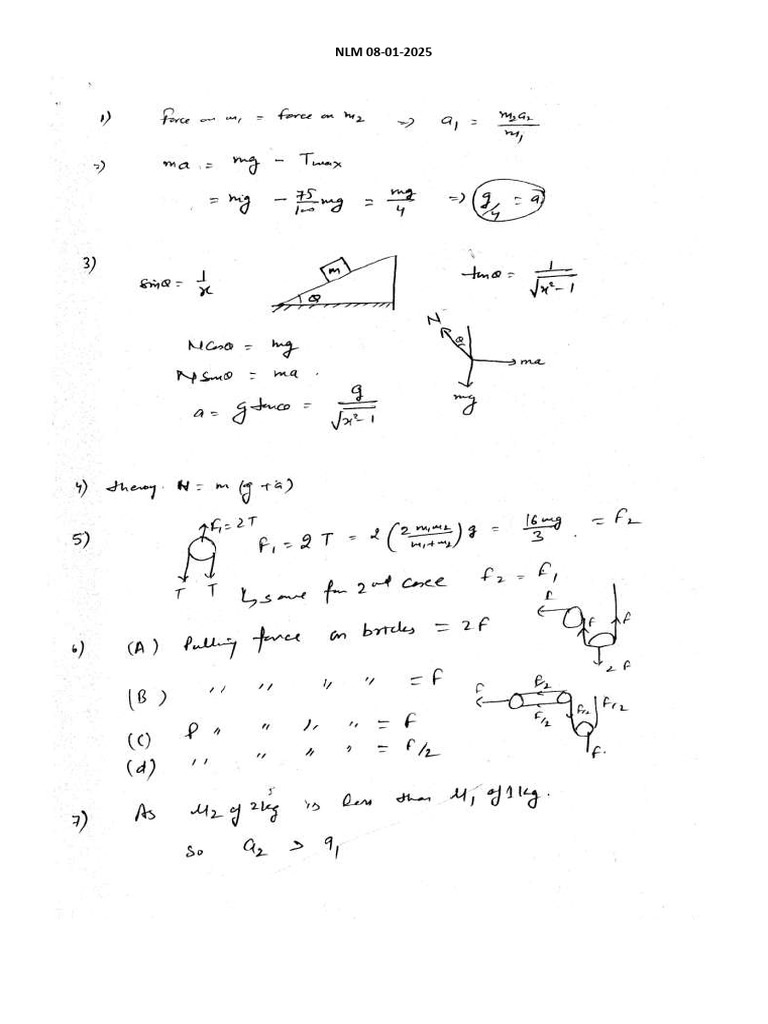 NLM 08-01-2025
1) force on m₁ = force on m₂ ⇒ a₁ = m₂a₂/m₁
2) ma = mg - Tmax
= mg - 75/100 mg = mg/4 ⇒ g/4 = a
3) sinθ = 1/x
m
θ
tanθ = 1/√(x²-1)
Ncosθ = mg
Nsinθ = ma.
a = g tanθ = g/√(x²-1)
N
θ
ma
mg
4) theroy. N = m(g+a)
5) F₁ = 2T
T T
F₁ = 2T = 2(2m₁m₂/(m₁+m₂))g = 16mg/3. = F₂
↳ same for 2nd case F₂ = F₁
6) (A) Pulling force on bricks = 2F
F
F F
2F
(B) '' '' '' '' = F
F
F/2
F/2
F/2 F/2
F.
(C) P '' '' '' '' = F
(d) '' '' '' '' = F/2
7) As M₂ of 2kg is less than M₁ of 1kg.
So a₂ > a₁